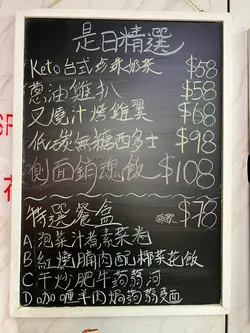 是日精選
Keto台式珍珠奶茶 $58
蔥油雞扒 $58
叉燒汁烤雞翼 $68
低炭無糖西多士 $98
側面銷魂飯 $108
特選餐盒 $78
A 泡菜汁煮素菜卷
B 紅燒腩肉配椰菜花飯
C 干炒肥牛蒟蒻河
D 咖喱羊肉焗蒟蒻麵